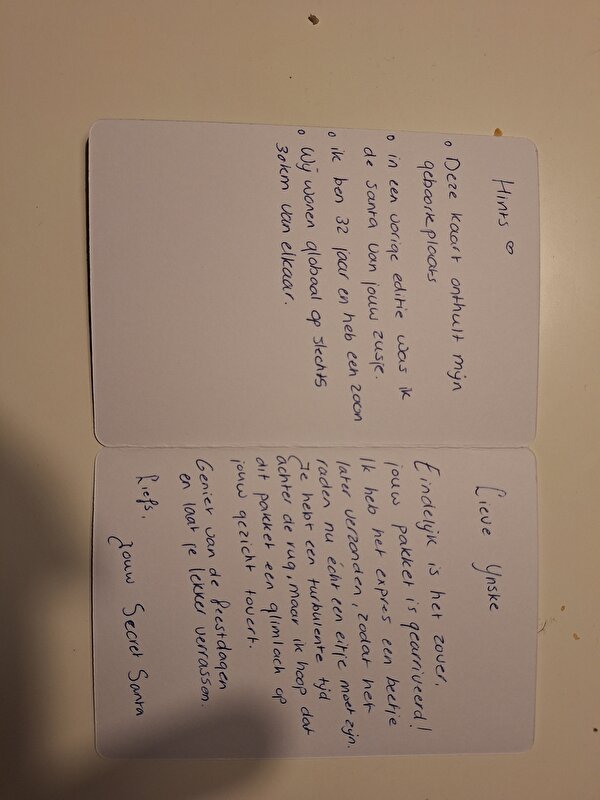 Hints ♡
o Deze kaart onthult mijn
geboorteplaats
o in een vorige editie was ik
de Santa van jouw zusje.
o ik ben 32 jaar en heb een zoon
o Wij wonen globaal op slechts
30km van elkaar.
Lieve Ynske
Eindelijk is het zover,
jouw pakket is gearriveerd!
Ik heb het expres een beetje
later verzonden, zodat het
raden nu écht een eitje moet zijn.
Je hebt een turbulente tijd
achter de rug, maar ik hoop dat
dit pakket een glimlach op
jouw gezicht tovert.
Geniet van de feestdagen
en laat je lekker verrassen.
Liefs,
Jouw Secret Santa